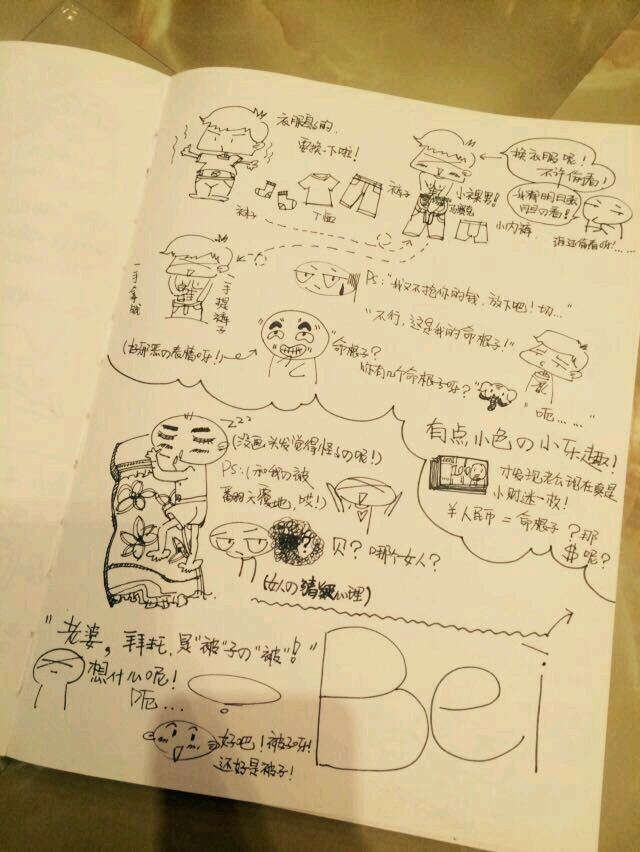 衣服多的,
要换一下啦!
换衣服呢!
不许偷看!
闭の看!
裤子
小裸男!
袜子
T恤
小内裤
谁还偷看呀!......
一手拿钱
一手提裤子
PS:"我又不抢你的钱,放下吧!切..."
"不行,这是我的命根子!"
(由邪恶の表情呀!)
"命根子?
你有几个命根子呀?"
"呃......"
有点小色の小乐趣!
100
才发现老公现在真是
小财迷一枚!
¥人民币=命根子?那
$呢?
zzz
(没画头发觉得怪怪の呢!)
PS:(和我の被
翻天覆地,哄!)
?
贝?哪个女人?
(女人の猜疑心理)
"老婆,拜托,是"被"子の"被"!"
想什么呢!
呃...
Bei
好吧!被子呀!
还好是被子!